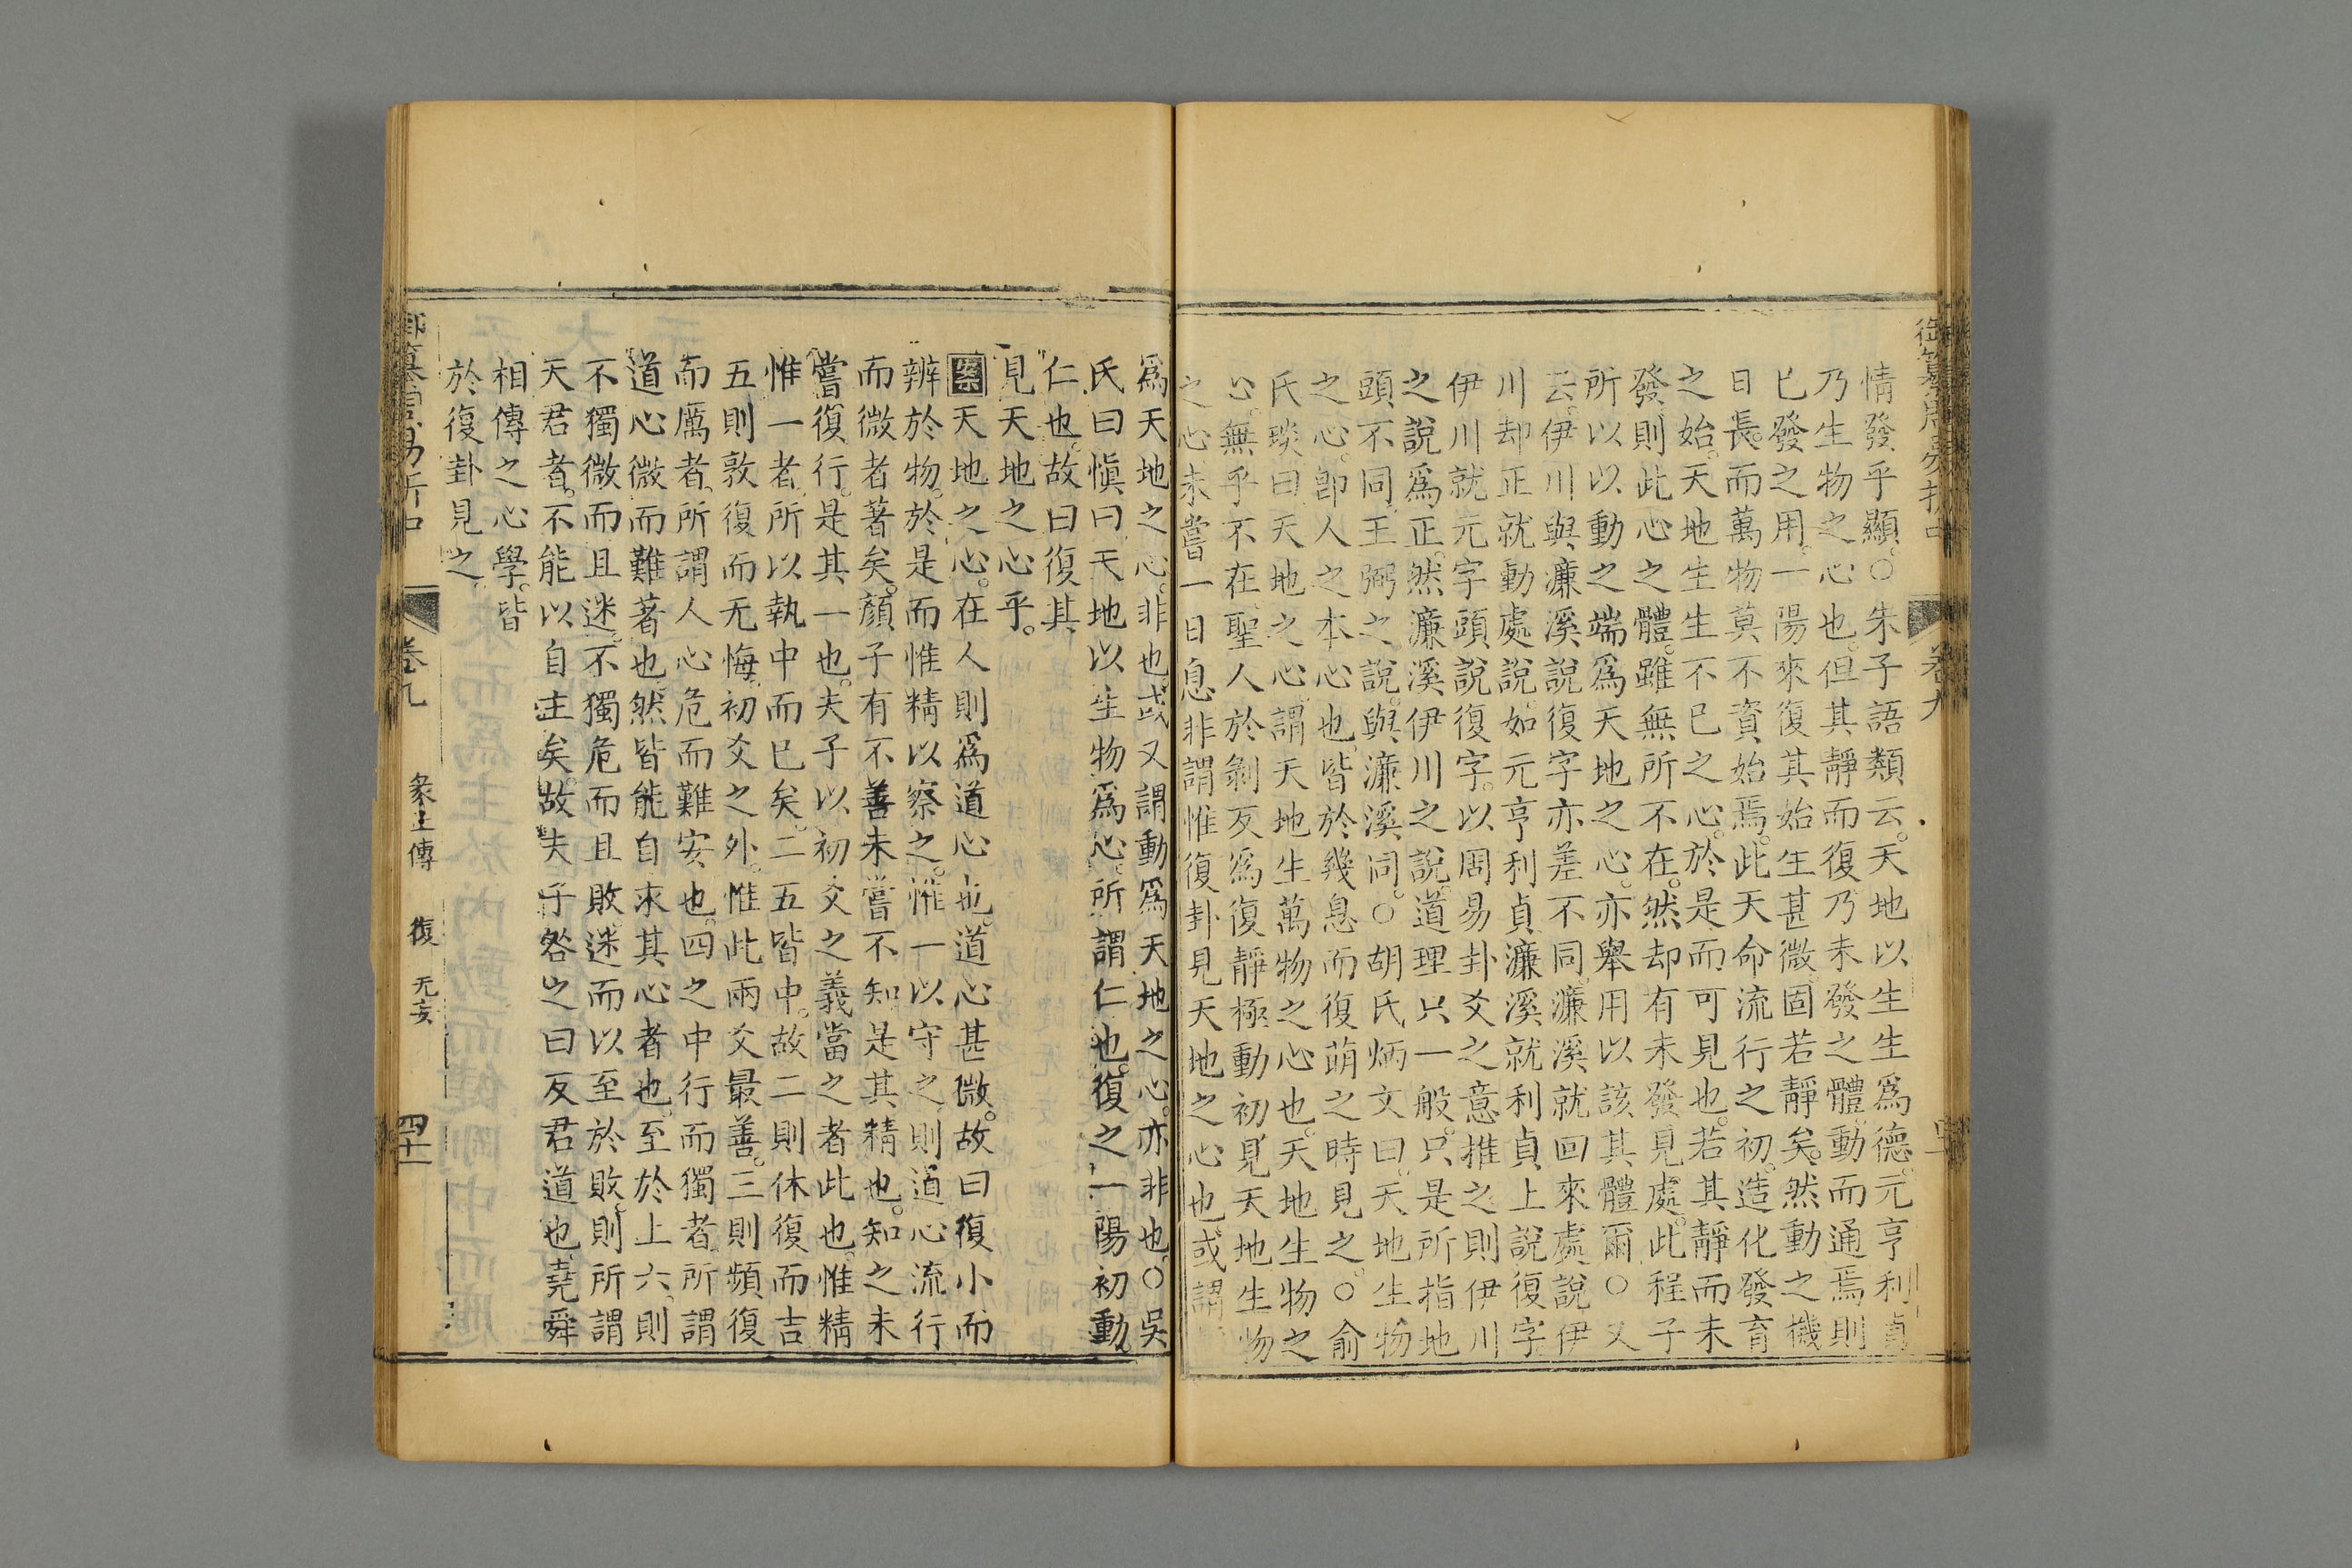 御纂周易折中
卷九
情發乎顯。○朱子語類云。天地以生生為德。元亨利貞
乃生物之心也。但其靜而復乃未發之體。動而通焉則
已發之用。一陽來復其始生甚微。固若靜矣。然動之機
日長。而萬物莫不資始焉。此天命流行之初。造化發育
之始。天地生生不已之心。於是而可見也。若其靜而未
發。則此心之體。雖無所不在。然却有未發見處。此程子
所以以動之端為天地之心。亦舉用以該其體爾。○又
云。伊川與濂溪說復字亦差不同。濂溪就回來處說伊
川却正就動處說。如元亨利貞濂溪就利貞上說復字
伊川就元字頭說復字。以周易卦爻之意推之則伊川
之說為正。然濂溪伊川之說。道理只一般。只是所指地
頭不同。王弼之說。與濂溪同。○胡氏炳文曰。天地生物
之心。卽人之本心也。皆於幾息而復萌之時見之。○俞
氏琰曰。天地之心。謂天地生萬物之心也。天地生物之
心。無乎不在。聖人於剝反為復靜極動初。見天地生物
之心未嘗一日息。非謂惟復卦見天地之心也。或謂
為天地之心。非也。或又謂動為天地之心。亦非也。○吳
氏曰愼曰。天地以生物為心。所謂仁也。復之一陽初動。
仁也。故曰復其
見天地之心乎。
案天地之心。在人則為道心也。道心甚微。故曰復小而
辨於物。於是而惟精以察之。惟一以守之。則道心流行
而微者著矣。顏子有不善未嘗不知。是其精也。知之未
嘗復行。是其一也。夫子以初爻之義當之者此也。惟精
惟一者。所以執中而已矣。二五皆中。故二則休復而吉
五則敦復而无悔。初爻之外。惟此兩爻最善。三則頻復
而厲者。所謂人心危而難安也。四之中行而獨者。所謂
道心微而難著也。然皆能自求其心者也。至於上六。則
不獨微而且迷。不獨危而且敗。迷而以至於敗。則所謂
天君者。不能以自主矣。故夫子咎之曰反君道也。堯舜
相傳之心學。皆
於復卦見之。
御纂周易折中
卷九
彖上傳
復
无妄
四十一